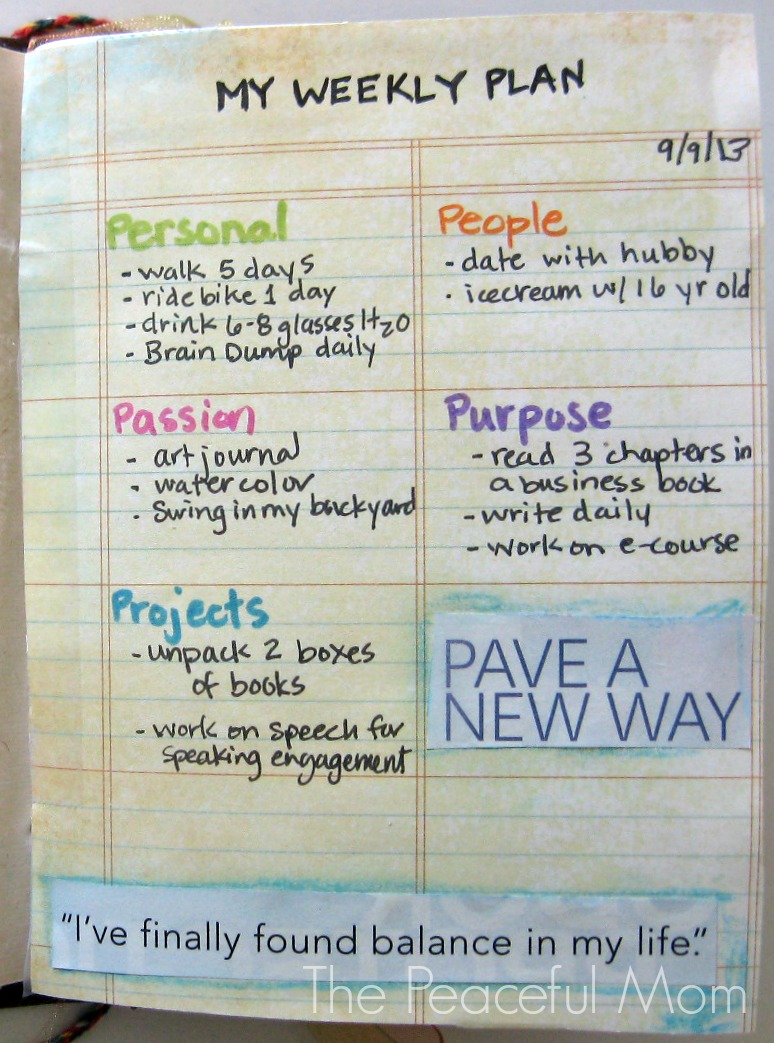 MY WEEKLY PLAN
9/9/13
Personal
- walk 5 days
- ride bike 1 day
- drink 6-8 glasses H2O
- Brain Dump daily
People
- date with hubby
- icecream w/ 16 yr old
Passion
- art journal
- watercolor
- Swing in my backyard
Purpose
- read 3 chapters in
a business book
- write daily
- work on e-course
Projects
- unpack 2 boxes
of books
- work on speech for
speaking engagement
PAVE A
NEW WAY
"I've finally found balance in my life."
The Peaceful Mom